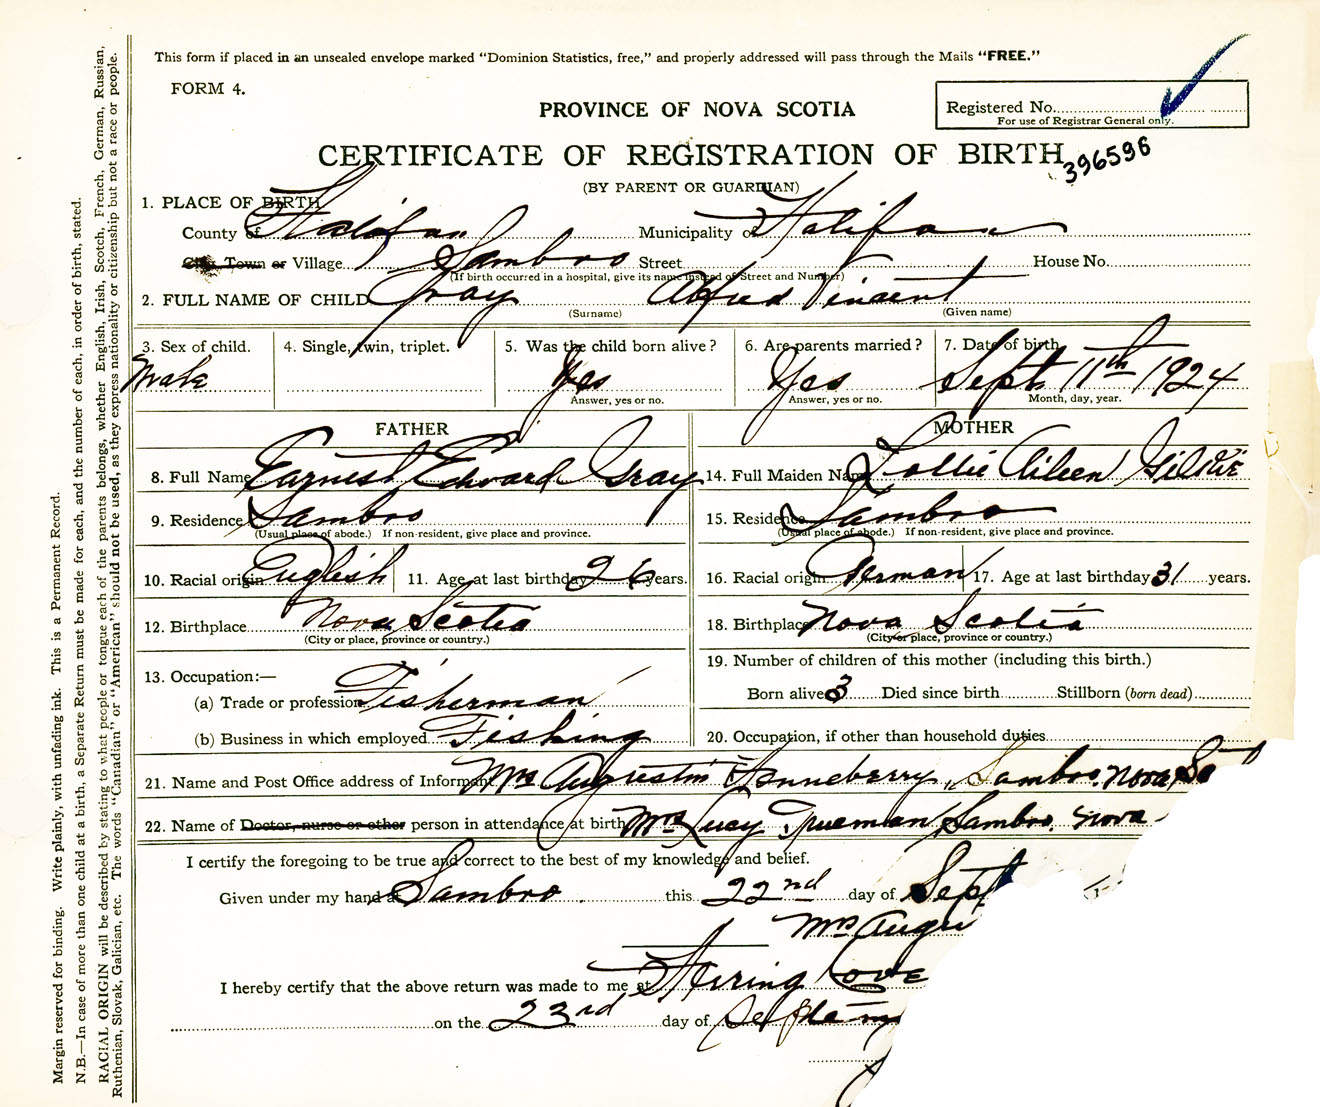 This form if placed in an unsealed envelope marked “Dominion Statistics, free,” and properly addressed will pass through the Mails “FREE.”
FORM 4.
PROVINCE OF NOVA SCOTIA
Registered No.
For use of Registrar General only.
CERTIFICATE OF REGISTRATION OF BIRTH
396596
(BY PARENT OR GUARDIAN)
1. PLACE OF BIRTH
County of Halifax Municipality of Halifax
City, Town or Village Sambro Street House No.
(If birth occurred in a hospital, give its name instead of Street and Number)
2. FULL NAME OF CHILD Gray Alfred Vincent
(Surname) (Given name)
3. Sex of child. 4. Single, twin, triplet. 5. Was the child born alive? 6. Are parents married? 7. Date of birth
Male Yes Yes Sept 11th 1924
Answer, yes or no. Answer, yes or no. Month, day, year.
FATHER MOTHER
8. Full Name Earnest Edward Gray 14. Full Maiden Name Lollie Aileen Gilkie
9. Residence Sambro 15. Residence Sambro
(Usual place of abode.) If non-resident, give place and province. (Usual place of abode.) If non-resident, give place and province.
10. Racial origin English 11. Age at last birthday 26 years. 16. Racial origin German 17. Age at last birthday 31 years.
12. Birthplace Nova Scotia 18. Birthplace Nova Scotia
(City or place, province or country.) (City or place, province or country.)
13. Occupation:— 19. Number of children of this mother (including this birth.)
(a) Trade or profession Fisherman Born alive 3 Died since birth Stillborn (born dead)
(b) Business in which employed Fishing 20. Occupation, if other than household duties
21. Name and Post Office address of Informant Mrs Augustin Henneberry, Sambro. Nova Sco
22. Name of Doctor, nurse or other person in attendance at birth Mrs Lucy Trueman Sambro. Nova
I certify the foregoing to be true and correct to the best of my knowledge and belief.
Given under my hand at Sambro this 22nd day of Sept
Mrs Augu
I hereby certify that the above return was made to me at Herring Cove
on the 23rd day of Septem
Margin reserved for binding. Write plainly, with unfading ink. This is a Permanent Record.
N.B.—In case of more than one child at a birth, a Separate Return must be made for each, and the number of each, in order of birth, stated.
RACIAL ORIGIN will be described by stating to what people or tongue each of the parents belongs, whether English, Irish, Scotch, French, German, Russian,
Ruthenian, Slovak, Galician, etc. The words “Canadian” or “American” should not be used, as they express nationality or citizenship but not a race or people.